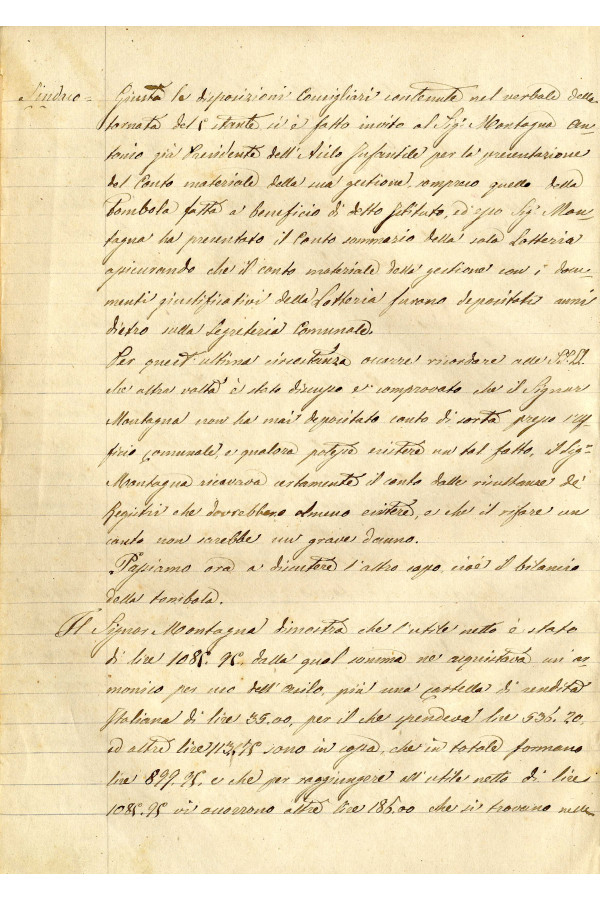 Sindaco = Giusta le disposizioni Consigliari contenute nel verbale della
tornata del 5 stante si è fatto invito al Sigr Montagna An-
tonio già Presidente dell'Asilo Infantile per la presentazione
del Conto materiale della sua gestione, compreso quello della
tombola fatta a beneficio di detto Istituto, ed esso Sigr Mon-
tagna ha presentato il Conto sommario della sola Lotteria
assicurando che il conto materiale della gestione con i docu-
menti giustificativi della Lotteria furono depositati anni
dietro sulla Segreteria Comunale.
Per quest'ultima circostanza occorre ricordare alle SS. LL.
che altra volta è stato discusso e comprovato che il Signor
Montagna non ha mai depositato conto di sorta presso l'uf-
ficio Comunale, e qualora potesse esistere un tal fatto, il Sigr
Montagna ricaverà certamente il conto dalle risultanze de'
Registri che dovrebbero almeno esistere, e che il rifare un
conto non sarebbe un grave danno.
Passiamo ora a discutere l'altro capo, cioè il bilancio
della tombola.
Il Signor Montagna dimostra che l'utile netto è stato
di lire 1085.95. dalla qual somma ne acquistava un ar-
monico per uso dell'asilo, più una cartella di rendita
Italiana di lire 35.00, per il che spendeva lire 536.20,
ed altre lire 113.75 sono in cassa, che in totale formano
lire 899.95. e che per raggiungere all'utile netto di lire
1085.95 vi occorrono altre lire 185.00 che si trovano nelle